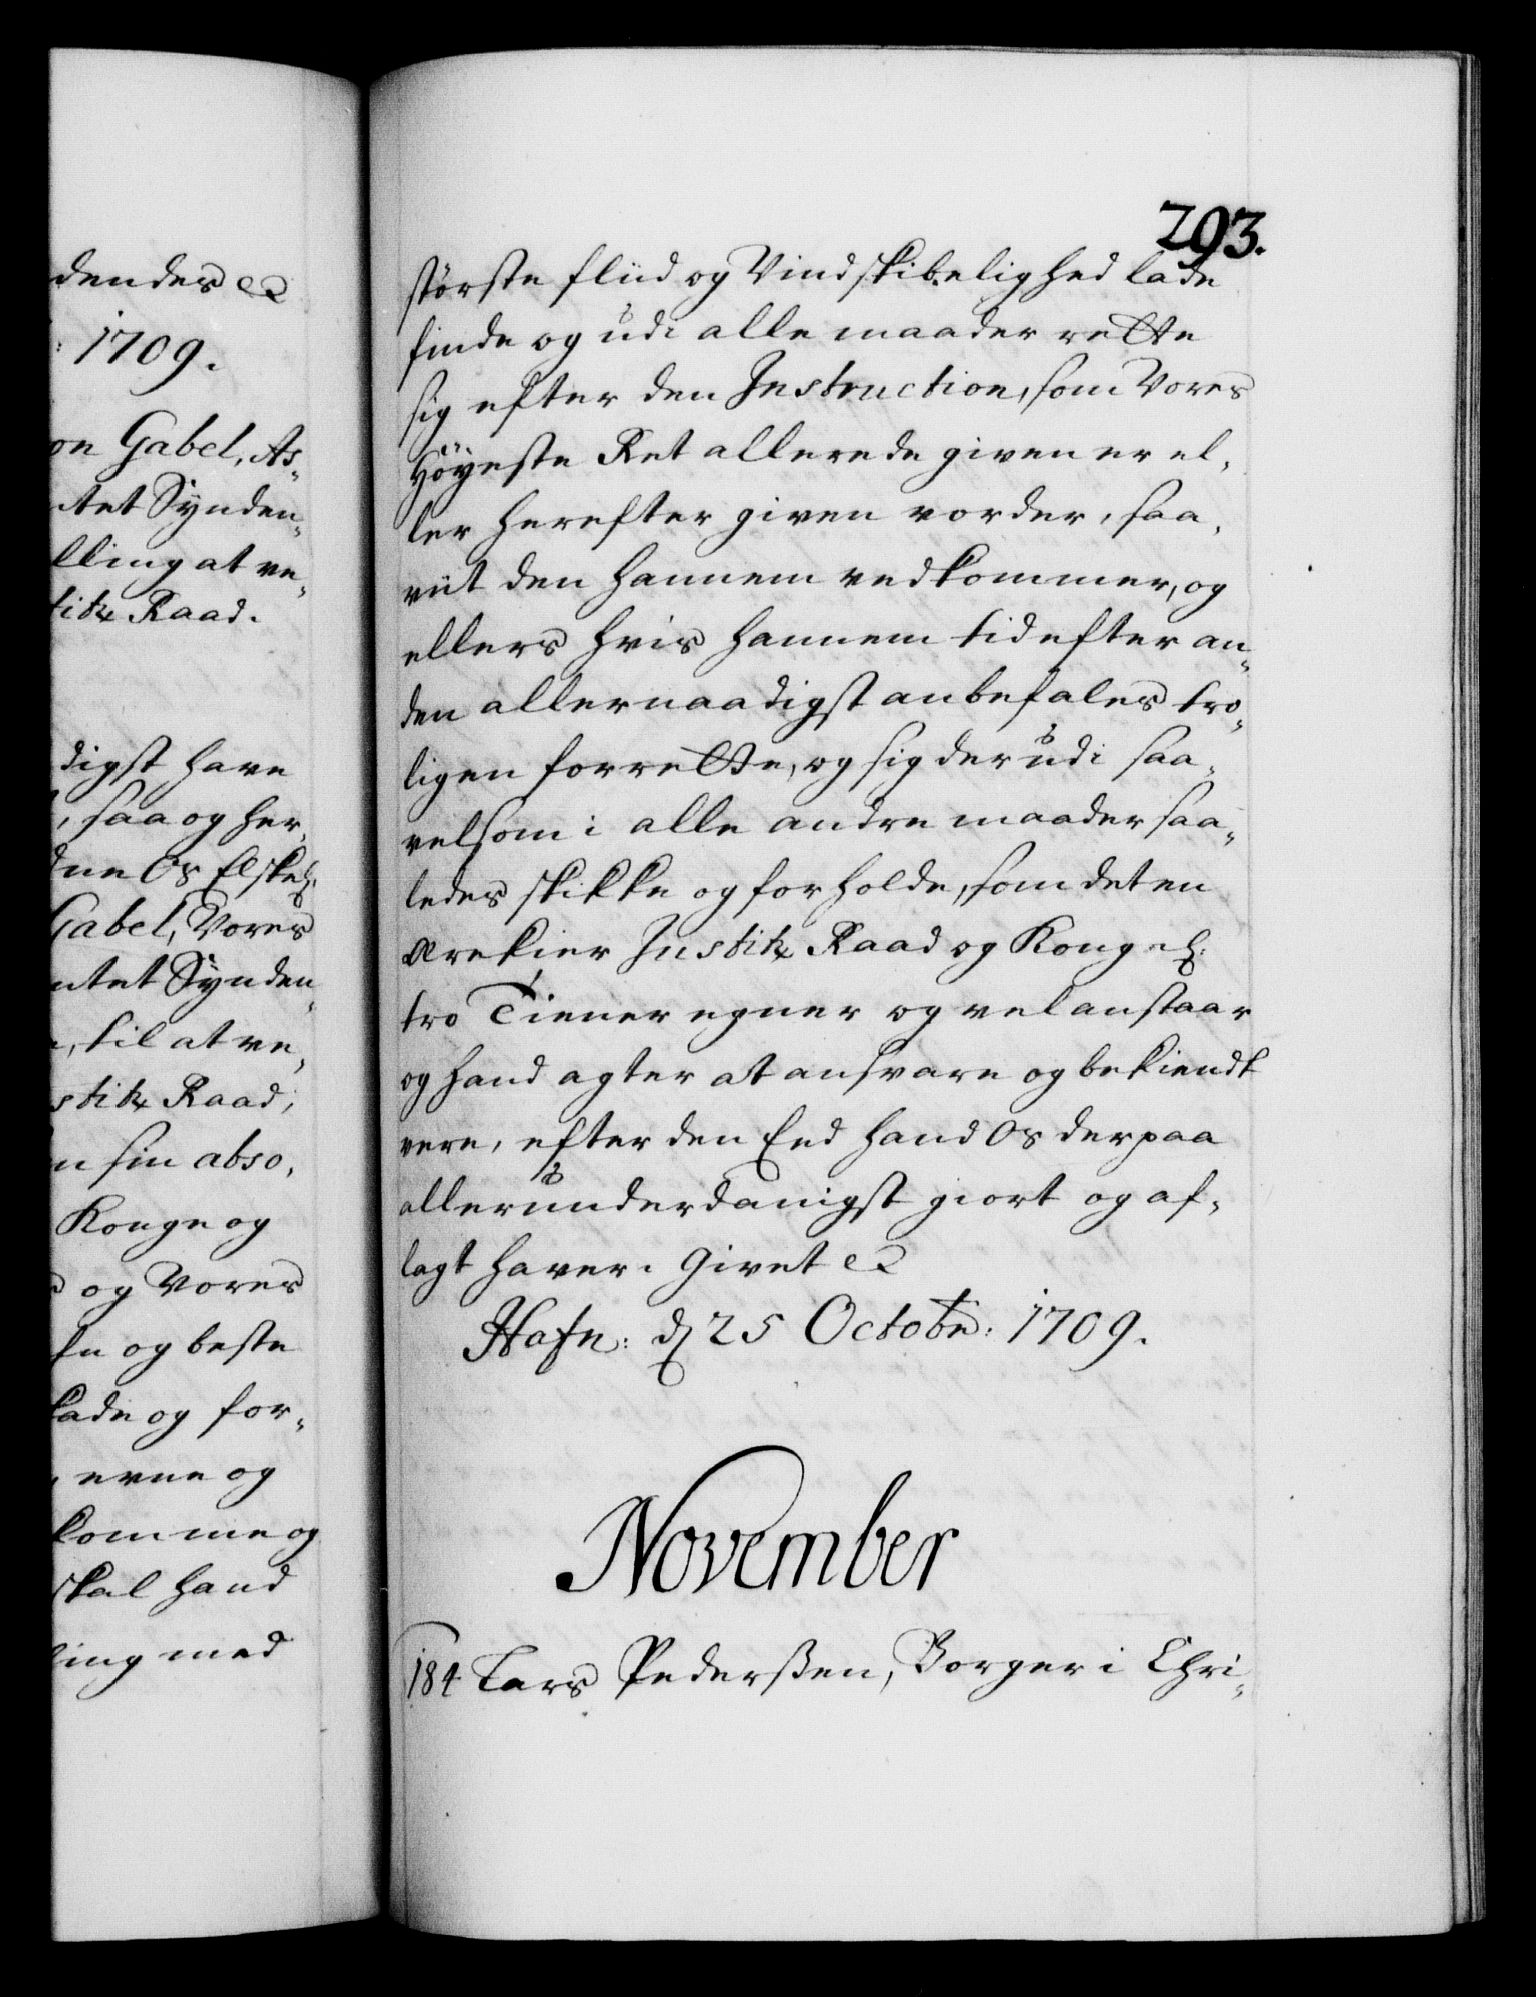 dendes etc
: 1709.
on Gabel, As-
ntet Synden-
lling at ve-
titz Raad.
digst have
, saa og her-
dne Os Elskel:
Gabel, Vores
ntet Synden-
, til at ve-
stitz Raad,
n sin abso-
Konge og
og Vores
og beste
skade og for-
evne og
komme og
skal hand
ling med
293.
største fliid og Vindskibelighed lade
finde og udi alle maader rette
sig efter den Instruction, som Vores
Høyeste Ret allerede given er el-
ler herefter given vorder, saa-
viit den hannem vedkommer, og
ellers hvis hannem tid efter an-
den allernaadigst anbefales tro-
ligen forrette, og sig derudi saa-
velsom i alle andre maader saa-
ledes skikke og forholde, som det en
ærekier Justitz Raad og Kongel:
tro Tiener egner og vel anstaar
og hand agter at ansvare og bekiendt
vere, efter den Eed hand Os derpaa
allerunderdanigst giort og af-
lagt haver. Givet etc
Hafn: d 25 Octobr: 1709.
November
184 Lars Pederßen, Borger i Chri-